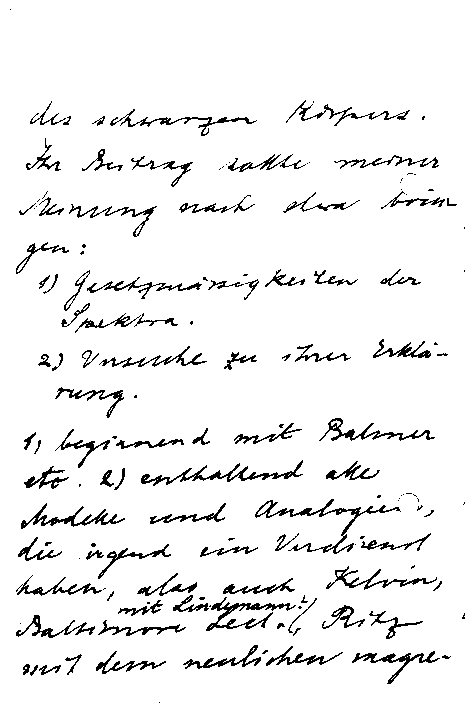 des schwarzen Körpers.
Ihr Beitrag sollte meiner
Meinung nach etwa brin-
gen:
1) Gesetzmässigkeiten der
Spektra.
2) Versuche zu ihrer Erklä-
rung.
1) beginnend mit Balmer
etc. 2) enthaltend alle
Modelle und Analogien,
die irgend ein Verdienst
haben, also auch Kelvin,
mit Lindemann?/
Baltimore Lect. (, Ritz
mit dem neulichen magne-